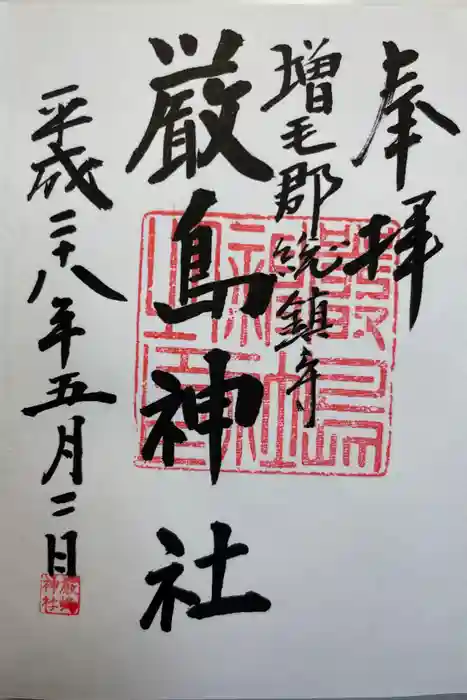 奉拝
増毛郡総鎮守
厳島神社
平成二十八年五月二日
嚴嶋
神社
厳島
神社